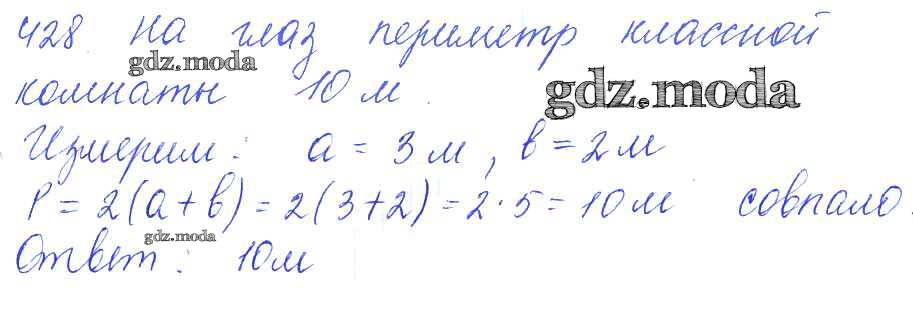 428 На глаз периметр классной
gdz.moda
комнаты 10 м.
gdz.moda
Измерим: a = 3 м, b = 2 м
P = 2(a+b) = 2(3+2) = 2·5 = 10 м совпало.
gdz.moda
Ответ: 10 м